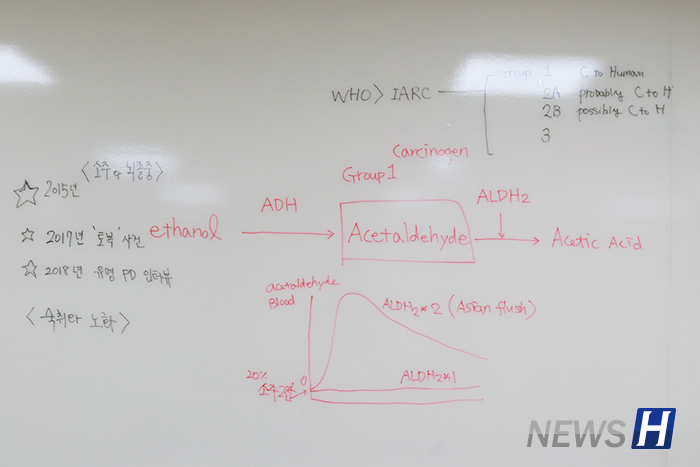 Group 1 C to Human
WHO > IARC 2A probably C to H
2B possibly C to H
3
<소주와 뇌졸중>
☆ 2015년
☆ 2017년 '토복' 사건
☆ 2018년 유명 PD 인터뷰
<숙취와 노화>
Carcinogen
Group 1
ethanol ADH Acetaldehyde ALDH2 Acetic Acid
acetaldehyde
Blood
ALDH2*2 (Asian flush)
ALDH2*1
0
20%
소주 2잔
NEWS H